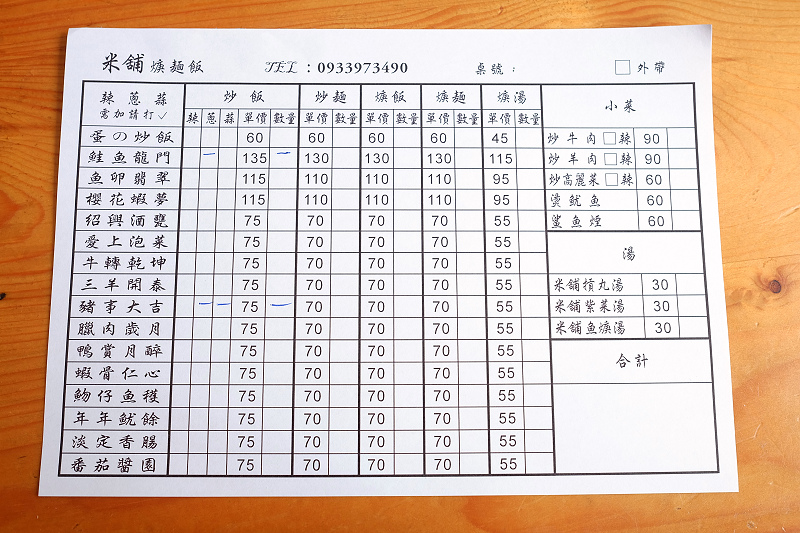 米舖 焿麵飯 TEL：0933973490 桌號： □外帶
辣蔥蒜 需加請打✓ 炒飯 炒麵 焿飯 焿麵 焿湯 小菜
辣 蔥 蒜 單價 數量 單價 數量 單價 數量 單價 數量 單價 數量
蛋の炒飯 60 60 60 60 45 炒牛肉□辣 90
鮭魚龍門 一 135 一 130 130 130 115 炒羊肉□辣 90
魚卵翡翠 115 110 110 110 95 炒高麗菜□辣 60
櫻花蝦夢 115 110 110 110 95 燙魷魚 60
紹興酒甕 75 70 70 70 55 鯊魚煙 60
愛上泡菜 75 70 70 70 55 湯
牛轉乾坤 75 70 70 70 55
三羊開泰 75 70 70 70 55 米舖摃丸湯 30
豬事大吉 一 一 75 一 70 70 70 55 米舖紫菜湯 30
臘肉歲月 75 70 70 70 55 米舖魚焿湯 30
鴨賞月醉 75 70 70 70 55 合計
蝦骨仁心 75 70 70 70 55
魩仔魚穫 75 70 70 70 55
年年魷餘 75 70 70 70 55
淡定香腸 75 70 70 70 55
番茄醬園 75 70 70 70 55